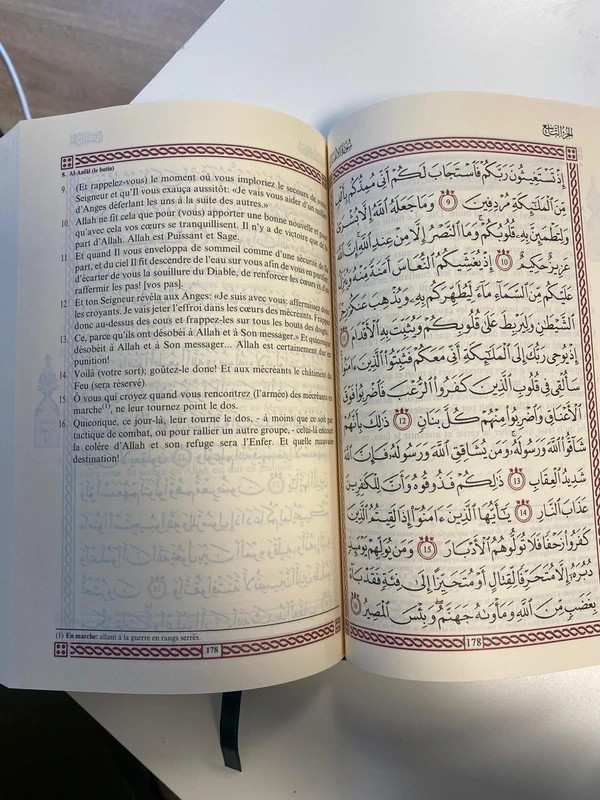 8. Al-Anfâl (le butin)
9. (Et rappelez-vous) le moment où vous imploriez le secours de
Seigneur et qu'Il vous exauça aussitôt: «Je vais vous aider d'un
d'Anges déferlant les uns à la suite des autres.»
10. Allah ne fit cela que pour (vous) apporter une bonne nouvelle et pour
qu'avec cela vos cœurs se tranquillisent. Il n'y a de victoire que de la
part d'Allah. Allah est Puissant et Sage.
11 Et quand Il vous enveloppa de sommeil comme d'une sécurité de Sa
part, et du ciel Il fit descendre de l'eau sur vous afin de vous en purifier,
d'écarter de vous la souillure du Diable, de renforcer les cœurs et d'en
raffermir les pas! [vos pas].
12. Et ton Seigneur révéla aux Anges: «Je suis avec vous: affermissez donc
les croyants. Je vais jeter l'effroi dans les cœurs des mécréants. Frappez
donc au-dessus des cous et frappez-les sur tous les bouts des doigts.
13. Ce, parce qu'ils ont désobéi à Allah et à Son messager.» Et quiconque
désobéit à Allah et à Son messager... Allah est certainement dur en
punition!
14. Voilà (votre sort); goûtez-le donc! Et aux mécréants le châtiment du
Feu (sera réservé).
15. Ô vous qui croyez quand vous rencontrez (l'armée) des mécréants en
marche(1), ne leur tournez point le dos.
16. Quiconque, ce jour-là, leur tourne le dos, - à moins que ce soit par
tactique de combat, ou pour rallier un autre groupe, - celui-là encourt
la colère d'Allah et son refuge sera l'Enfer. Et quelle mauvaise
destination!
(1) En marche: allant à la guerre en rangs serrés.
178
الجزء التاسع
إِذْ تَسْتَغِيثُونَ رَبَّكُمْ فَاسْتَجَابَ لَكُمْ أَنِّي مُمِدُّكُم بِأَلْفٍ
مِّنَ الْمَلَٰٓئِكَةِ مُرْدِفِينَ ٩ وَمَا جَعَلَهُ اللَّهُ إِلَّا بُشْرَىٰ
وَلِتَطْمَئِنَّ بِهِ قُلُوبُكُمْ وَمَا النَّصْرُ إِلَّا مِنْ عِندِ اللَّهِ إِنَّ اللَّهَ
عَزِيزٌ حَكِيمٌ ١٠ إِذْ يُغَشِّيكُمُ النُّعَاسَ أَمَنَةً مِّنْهُ وَيُنَزِّلُ
عَلَيْكُم مِّنَ السَّمَآءِ مَآءً لِّيُطَهِّرَكُم بِهِ وَيُذْهِبَ عَنكُمْ رِجْزَ
الشَّيْطَٰنِ وَلِيَرْبِطَ عَلَىٰ قُلُوبِكُمْ وَيُثَبِّتَ بِهِ الْأَقْدَامَ ١١
إِذْ يُوحِي رَبُّكَ إِلَى الْمَلَٰٓئِكَةِ أَنِّي مَعَكُمْ فَثَبِّتُوا الَّذِينَ ءَامَنُوا
سَأُلْقِي فِي قُلُوبِ الَّذِينَ كَفَرُوا الرُّعْبَ فَاضْرِبُوا فَوْقَ
الْأَعْنَاقِ وَاضْرِبُوا مِنْهُمْ كُلَّ بَنَانٍ ١٢ ذَٰلِكَ بِأَنَّهُمْ
شَآقُّوا اللَّهَ وَرَسُولَهُ وَمَن يُشَاقِقِ اللَّهَ وَرَسُولَهُ فَإِنَّ اللَّهَ
شَدِيدُ الْعِقَابِ ١٣ ذَٰلِكُمْ فَذُوقُوهُ وَأَنَّ لِلْكَٰفِرِينَ
عَذَابَ النَّارِ ١٤ يَٰٓأَيُّهَا الَّذِينَ ءَامَنُوا إِذَا لَقِيتُمُ الَّذِينَ
كَفَرُوا زَحْفًا فَلَا تُوَلُّوهُمُ الْأَدْبَارَ ١٥ وَمَن يُوَلِّهِمْ يَوْمَئِذٍ
دُبُرَهُ إِلَّا مُتَحَرِّفًا لِّقِتَالٍ أَوْ مُتَحَيِّزًا إِلَىٰ فِئَةٍ فَقَدْ بَآءَ
بِغَضَبٍ مِّنَ اللَّهِ وَمَأْوَىٰهُ جَهَنَّمُ وَبِئْسَ الْمَصِيرُ ١٦
178